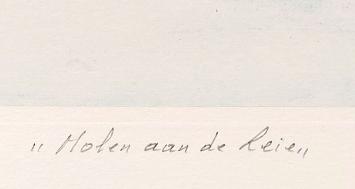 „ Molen aan de Leie„